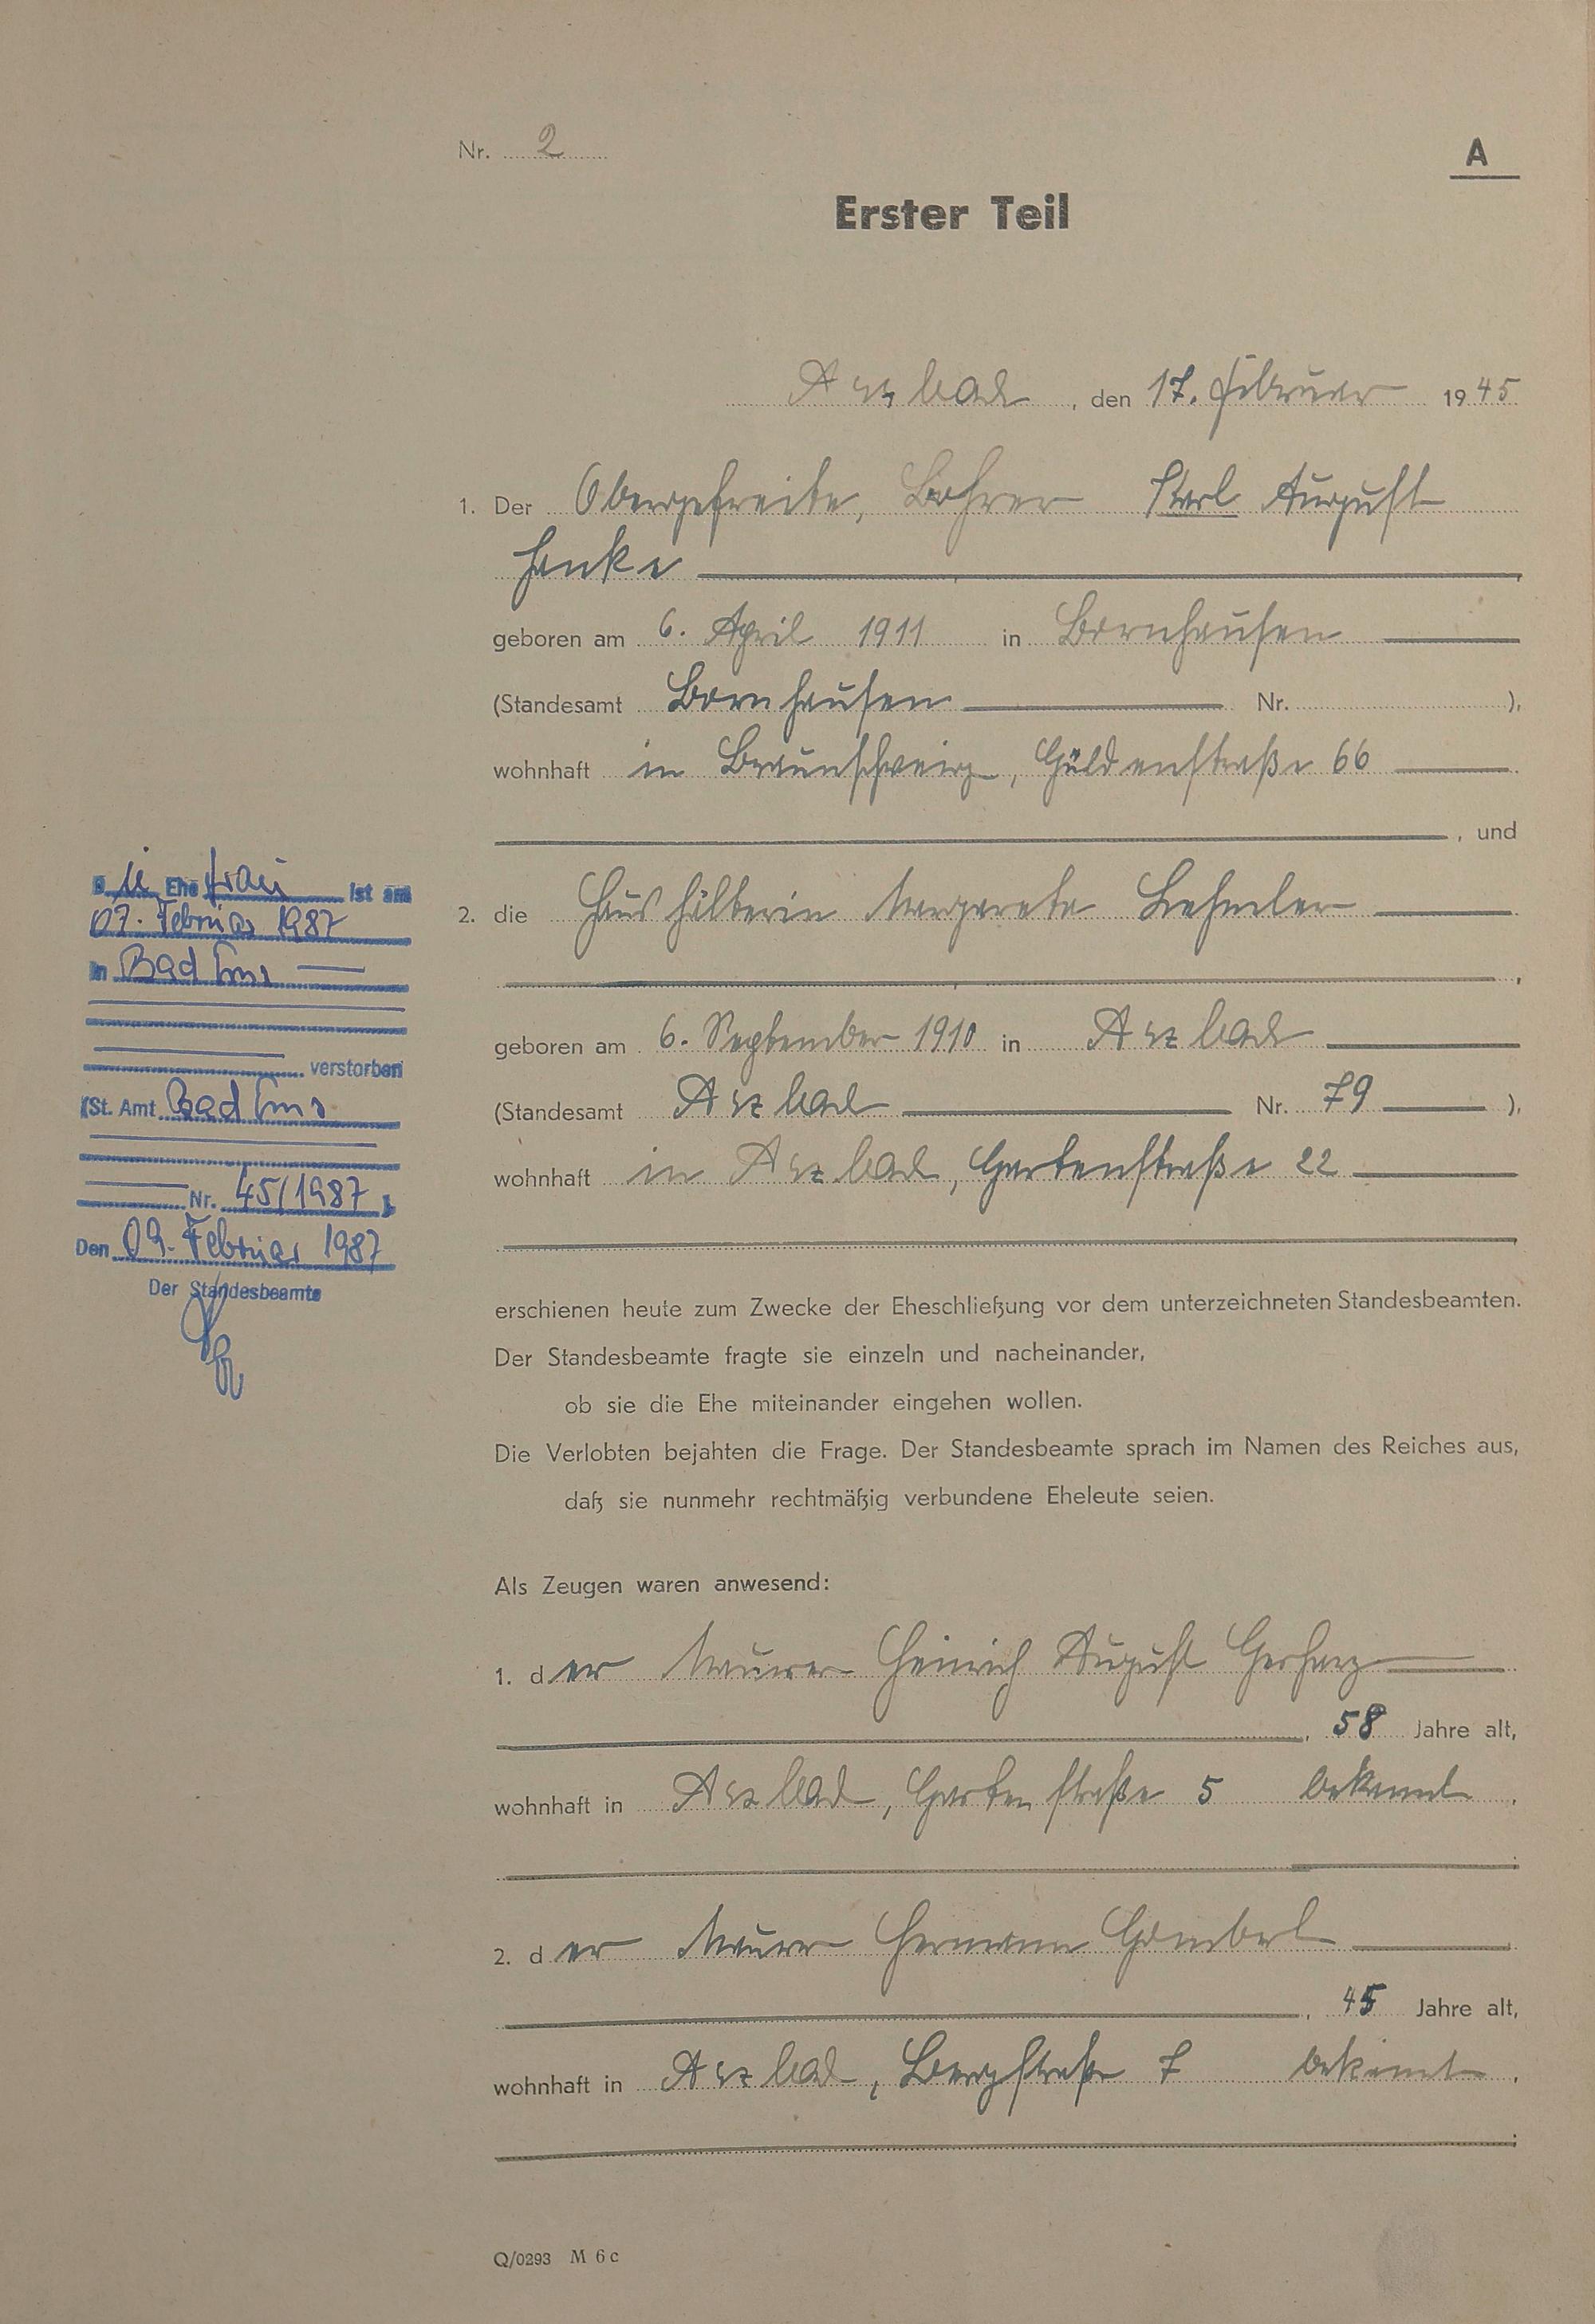 Nr. 2
A
Erster Teil
Arzbach, den 17. Februar 1945
1. Der Obergefreite, Bohrer Karl August
Hanke
geboren am 6. April 1911 in Bornhausen
(Standesamt Bornhausen Nr. ),
wohnhaft in Braunschweig, Güldenstraße 66
, und
2. die Haushälterin Margareta Lehmler
,
geboren am 6. September 1910 in Arzbach
(Standesamt Arzbach Nr. 79 ),
wohnhaft in Arzbach, Gartenstraße 22
erschienen heute zum Zwecke der Eheschließung vor dem unterzeichneten Standesbeamten.
Der Standesbeamte fragte sie einzeln und nacheinander,
ob sie die Ehe miteinander eingehen wollen.
Die Verlobten bejahten die Frage. Der Standesbeamte sprach im Namen des Reiches aus,
daß sie nunmehr rechtmäßig verbundene Eheleute seien.
Als Zeugen waren anwesend:
1. der Maurer Heinrich August Gerharz
, 58 Jahre alt,
wohnhaft in Arzbach, Gartenstraße 5 bekannt.
2. der Maurer Hermann Gombert
, 45 Jahre alt,
wohnhaft in Arzbach, Bergstraße 7 bekannt.
Q/0293 M 6 c
Die Ehefrau ist am
07. Februar 1987
in Bad Ems
verstorben
(St. Amt Bad Ems
Nr. 45/1987)
Den 09. Februar 1987
Der Standesbeamte